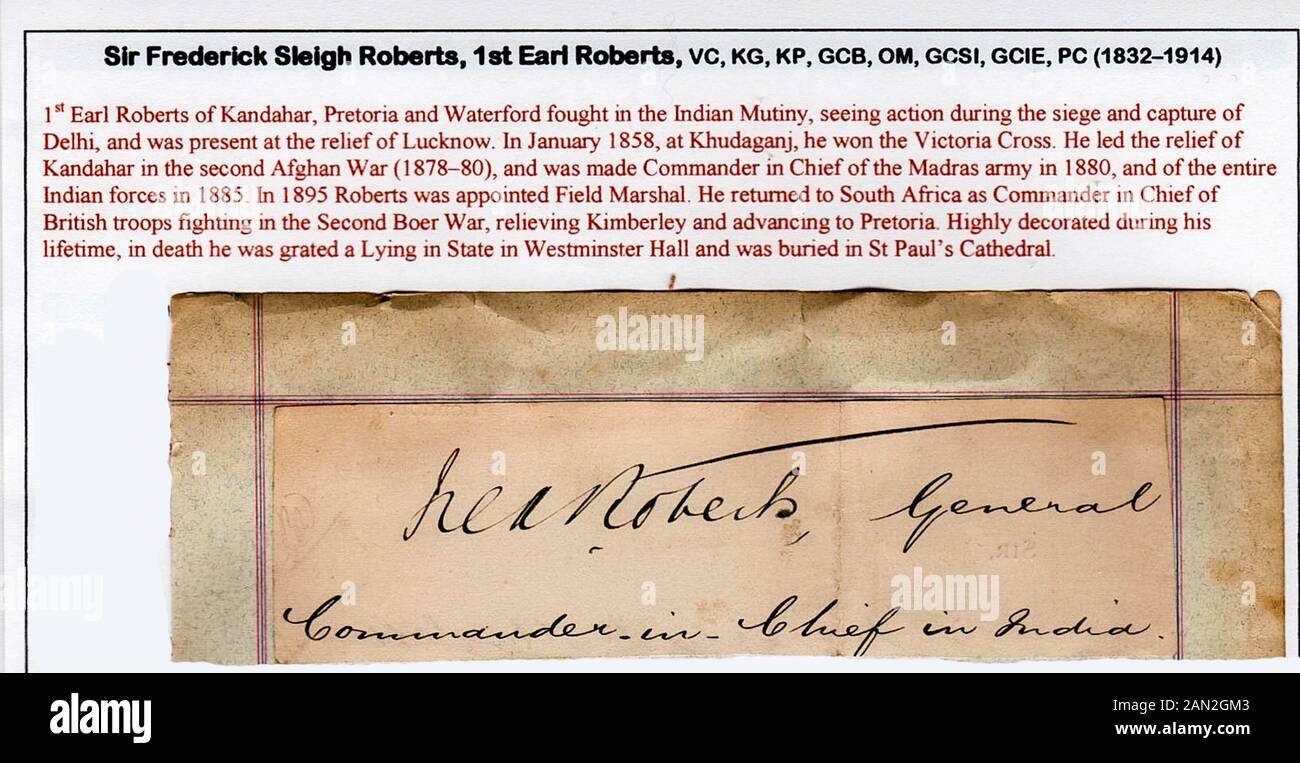 Sir Frederick Sleigh Roberts, 1st Earl Roberts, VC, KG, KP, GCB, OM, GCSI, GCIE, PC (1832–1914)
1st Earl Roberts of Kandahar, Pretoria and Waterford fought in the Indian Mutiny, seeing action during the siege and capture of
Delhi, and was present at the relief of Lucknow. In January 1858, at Khudaganj, he won the Victoria Cross. He led the relief of
Kandahar in the second Afghan War (1878–80), and was made Commander in Chief of the Madras army in 1880, and of the entire
Indian forces in 1885. In 1895 Roberts was appointed Field Marshal. He returned to South Africa as Commander in Chief of
British troops fighting in the Second Boer War, relieving Kimberley and advancing to Pretoria. Highly decorated during his
lifetime, in death he was grated a Lying in State in Westminster Hall and was buried in St Paul's Cathedral.
Fred Roberts, General
Commander-in-Chief in India.
SIR,
alamy
Image ID: 2AN2GM3
www.alamy.com